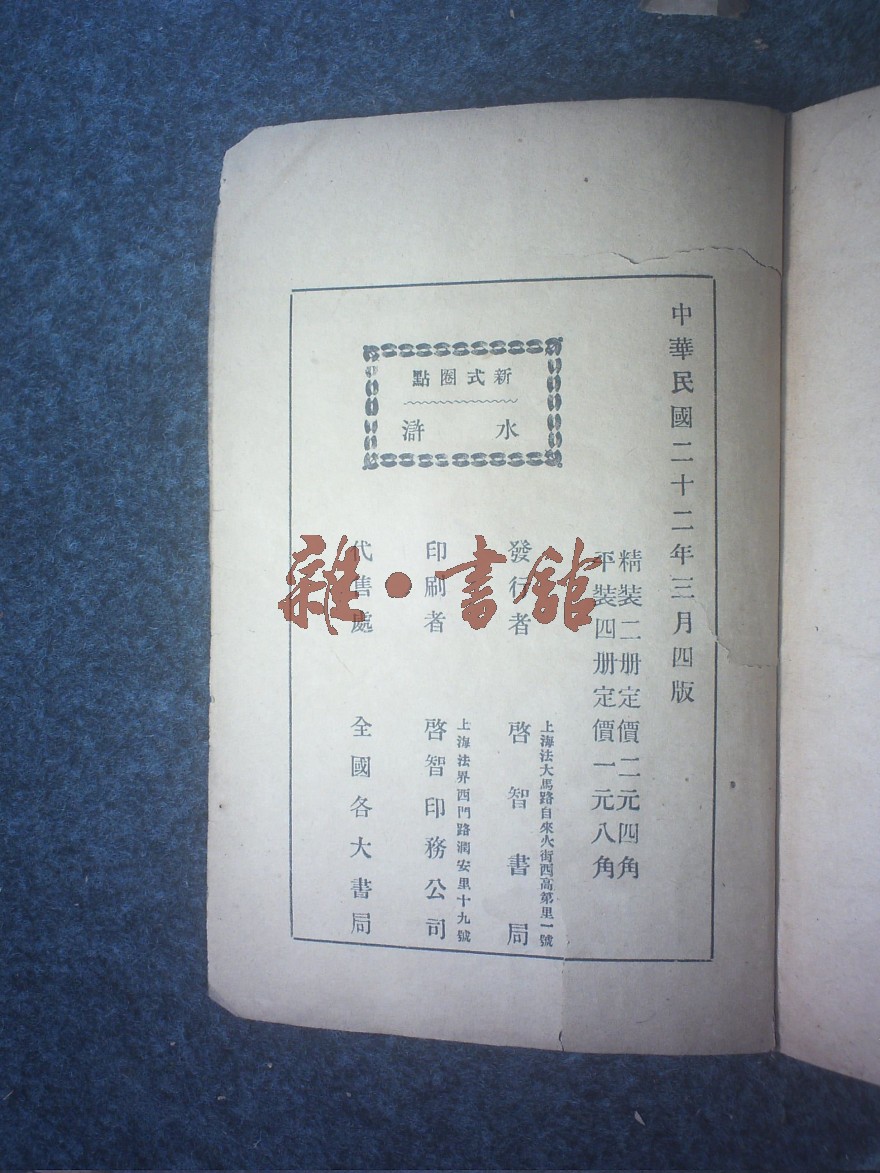 中華民國二十二年三月四版
精裝二册定價二元四角
平裝四册定價一元八角
新式圈點
水滸
發行者
上海法大馬路自來火街西高第里一號
啓智書局
印刷者
上海法界西門路潤安里十九號
啓智印務公司
代售處
全國各大書局
雜·書館